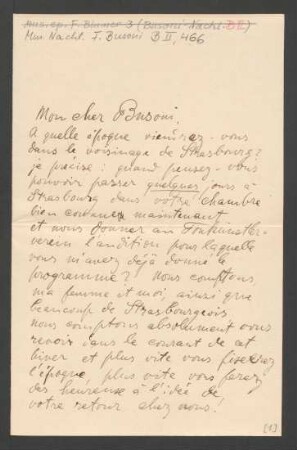 Mus. ep. F. Blumer 3 (Busoni-Nachl. B II)
Mus. Nachl. F. Busoni B II, 466
Mon cher Busoni,
A quelle époque viendrez-vous
dans le voisinage de Strasbourg?
je précise: quand pensez-vous
pouvoir passer quelques jours à
Strasbourg dans votre chambre
bien connue maintenant
et nous donner au Tonkünstler-
verein l'audition pour laquelle
vous m'avez déjà donné le
programme? Nous comptons
ma femme et moi, ainsi que
beaucoup de Strasbourgeois
nous comptons absolument vous
revoir dans le courant de cet
hiver et plus vite vous fixerez
l'époque, plus vite vous ferez
des heureux à l'idée de
votre retour chez nous.
[1]